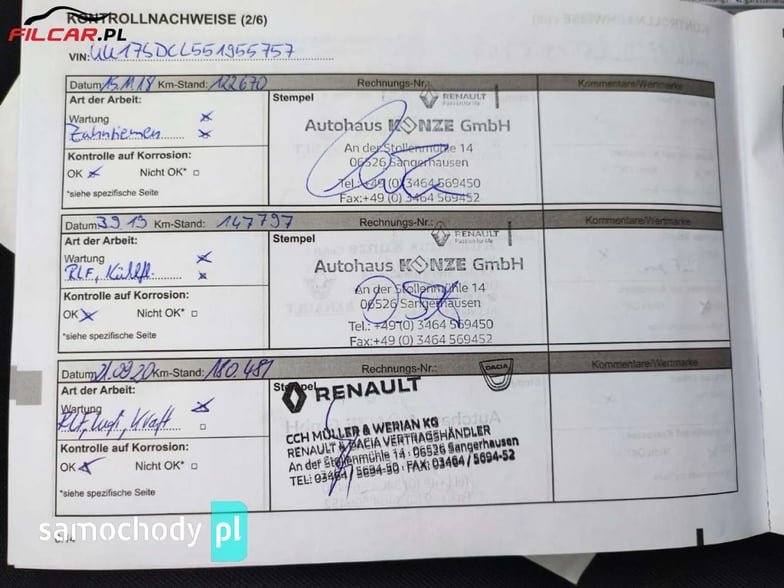 KONTROLLNACHWEISE (2/6)
FILCAR.PL
VIN: UU17SDCL551955757
Datum 15.11.18 Km-Stand: 122670 Rechnungs-Nr.: Kommentare/Wertmarke
Art der Arbeit: Stempel
RENAULT
Passion for life
Wartung x
Zahnriemen x
Autohaus KONZE GmbH
An der Stollenmühle 14
06526 Sangerhausen
Tel.: +49 (0) 3464 569450
Fax:+49 (0) 3464 569452
Kontrolle auf Korrosion:
OK x Nicht OK* □
*siehe spezifische Seite
Datum: 3.9.19 Km-Stand: 147797 Rechnungs-Nr.: Kommentare/Wertmarke
Art der Arbeit: Stempel
RENAULT
Passion for life
Wartung x
RLF, Kühlfl. x
Autohaus KONZE GmbH
An der Stollenmühle 14
06526 Sangerhausen
Tel.: +49 (0) 3464 569450
Fax:+49 (0) 3464 569452
Kontrolle auf Korrosion:
OK x Nicht OK* □
*siehe spezifische Seite
Datum: 21.09.20 Km-Stand: 180481 Rechnungs-Nr.: Kommentare/Wertmarke
Art der Arbeit: Stempel
RENAULT
DACIA
Wartung x
RLF, Luft, Kraft □
CCH MÜLLER & WERIAN KG
RENAULT & DACIA VERTRAGSHÄNDLER
An der Stollenmühle 14 · 06526 Sangerhausen
TEL: 03464 / 5694-50 · FAX: 03464 / 5694-52
Kontrolle auf Korrosion:
OK x Nicht OK* □
*siehe spezifische Seite
samochody pl